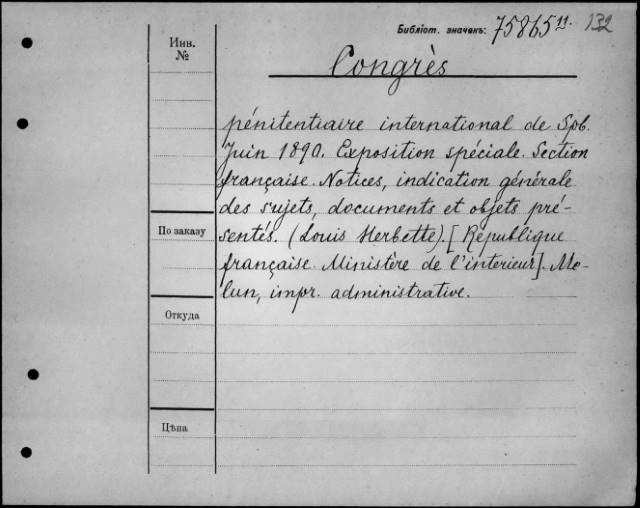 Библіот. значекъ: 75865 11. 132
Инв.
№
Congrès
pénitentiaire international de Spb.
Juin 1890. Exposition spéciale. Section
française. Notices, indication générale
des sujets, documents et objets pré-
По заказу
sentés. (Louis Herbette). [République
française. Ministère de l'interieur]. Me-
lun, impr. administrative.
Откуда
Цѣна